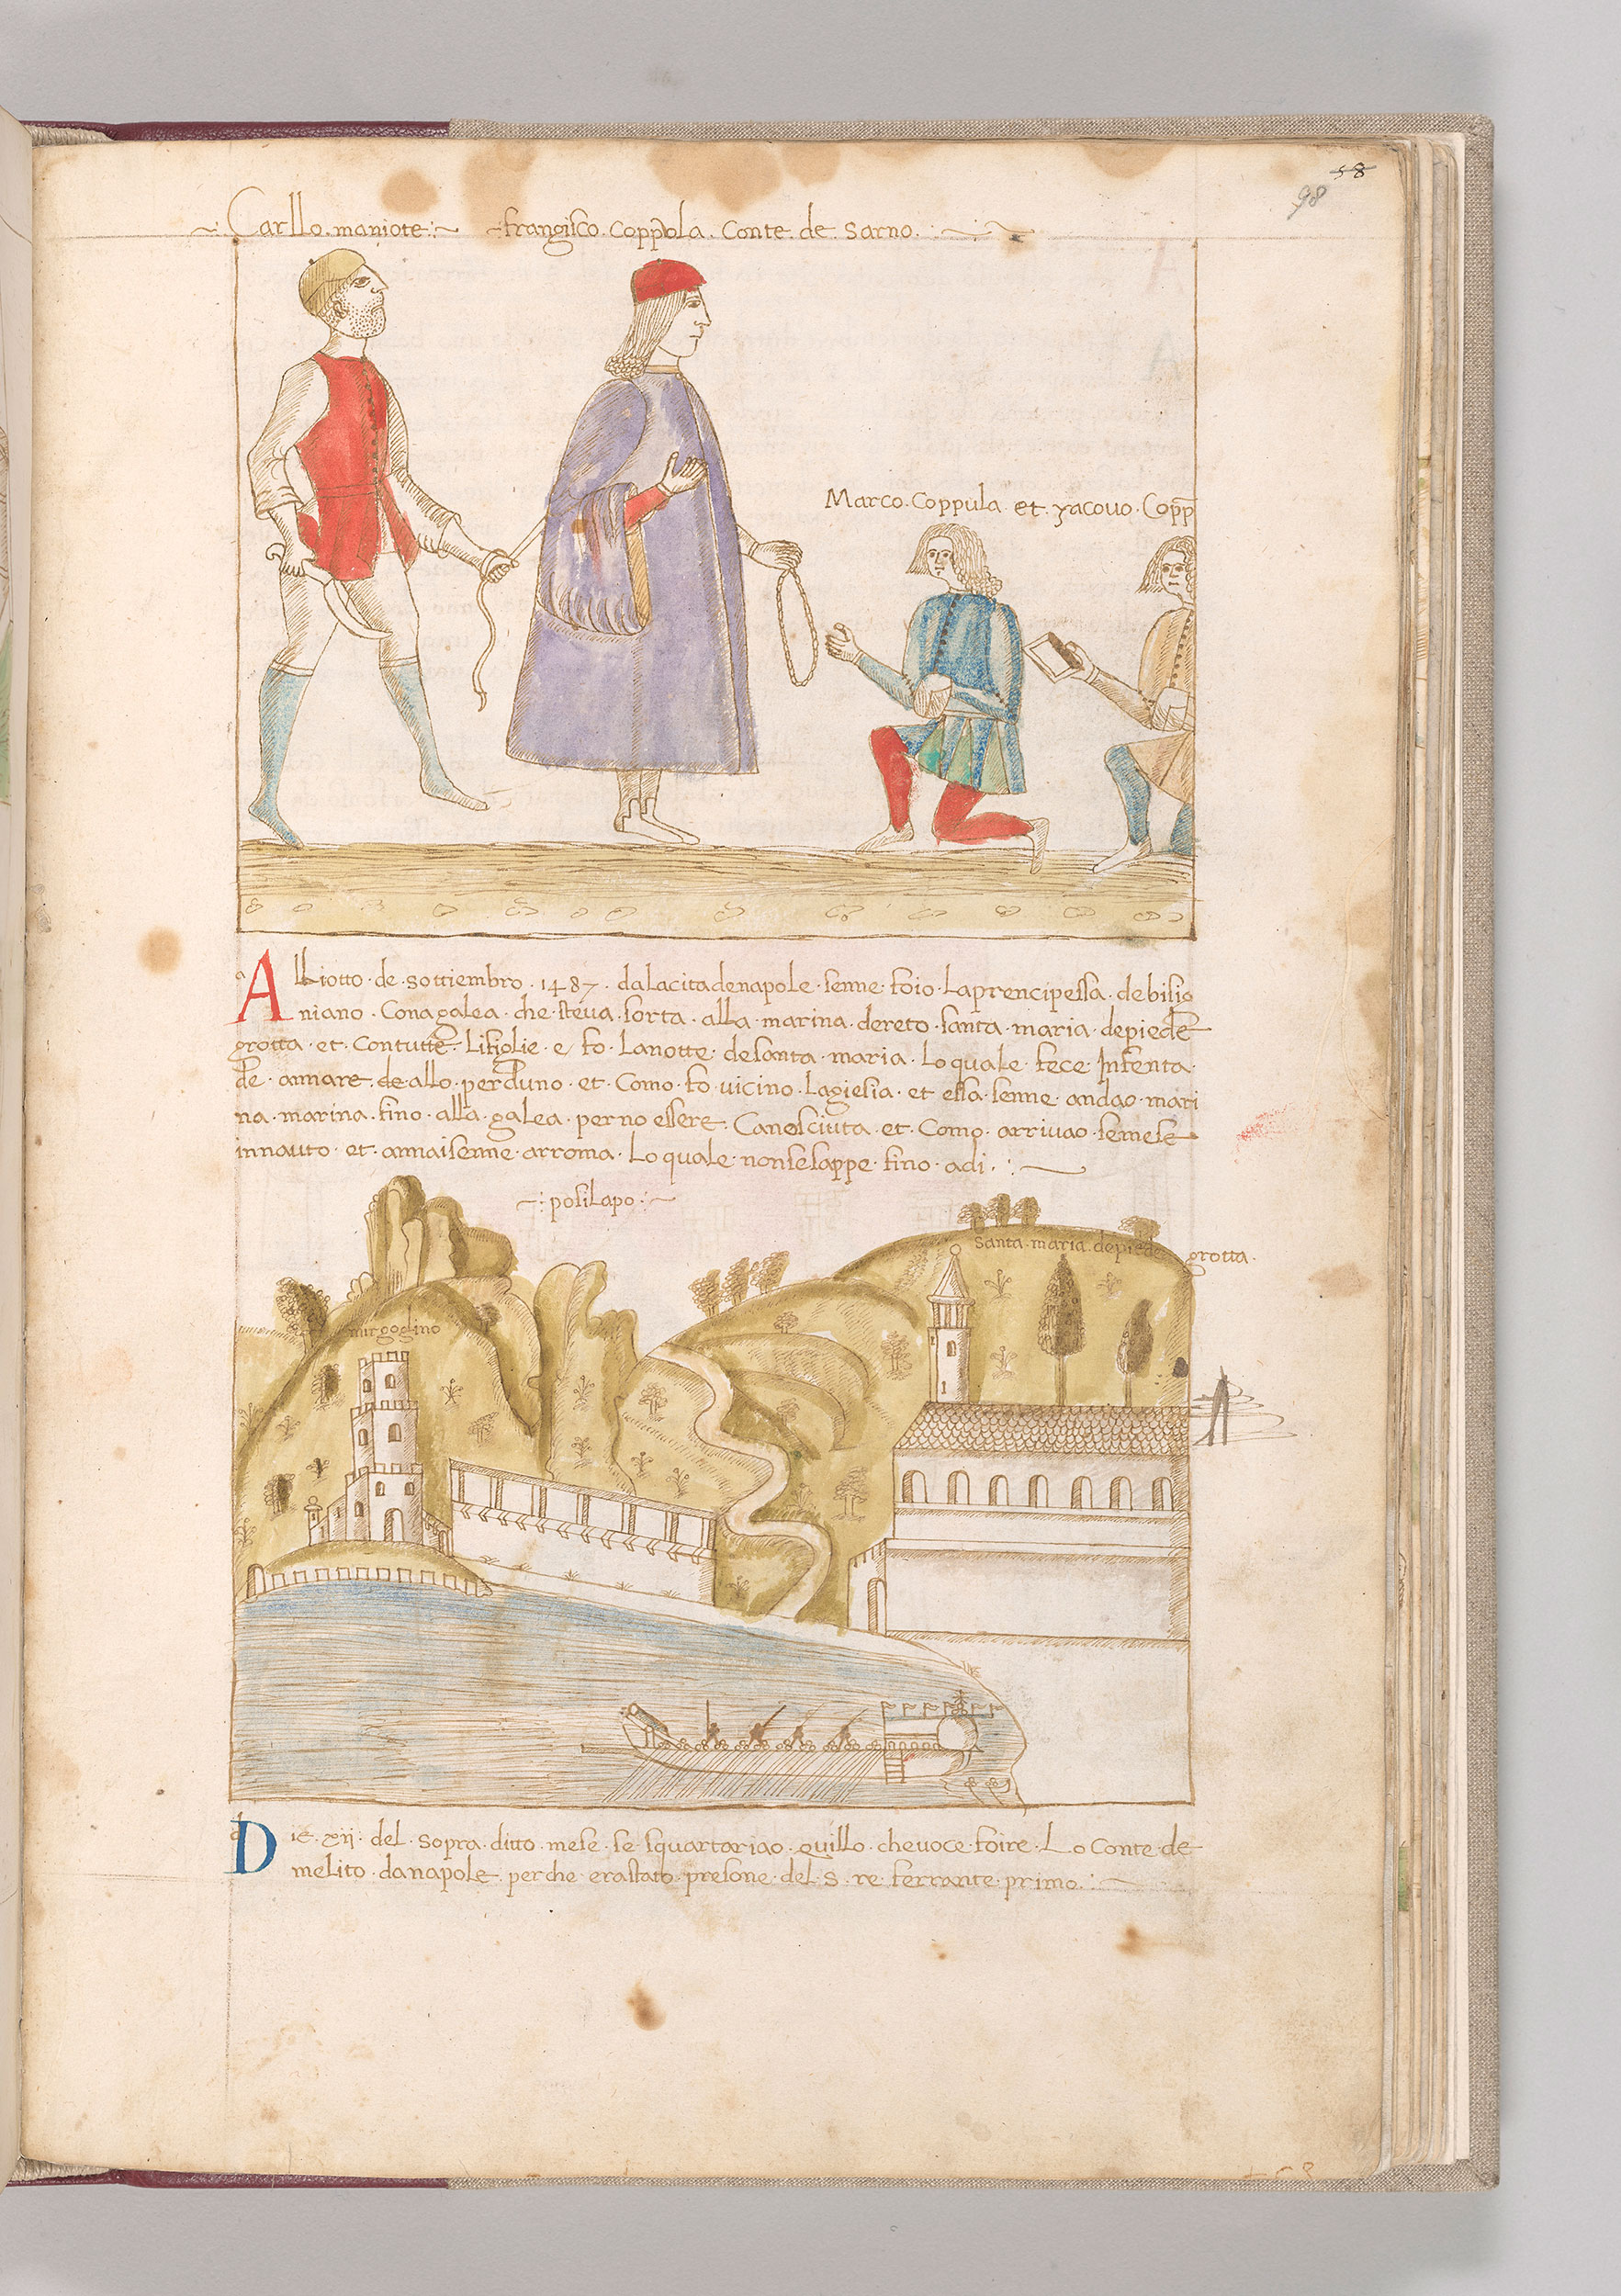 58
98
Carllo. maniote frangisco. coppola. Conte. de. Sarno.
Marco. Coppula. et. yacouo. Copp
Alliotto. de. sottiembro. 1487. dalacitadenapole. senne. foio. Laprencipessa. debisig
niano. Conagalea. che steua. sorta. alla. marina. dereto. santa. maria. depiede
grotta. et. Contutte. lifiolie. e fo. Lanotte. desanta. maria. Lo quale. fece. Infenta.
de. annare. de. allo. perduno. et. Como. fo. uicino. Lagiesia. et essa. senne. andao. mari
na. marina. fino. alla. galea. perno essere. Canosciuta. et. Como. arriuao. semese
innauto. et. annaisenne. arroma. Lo quale. nonsesappe. fino. adi.
posilapo
Santa. maria. depiede grotta.
mirgogino
Die. xij. del. sopra. ditto. mese. se. squartariao. quillo. cheuoce. foire. Lo Conte. de
melito. danapole. perche. erastato. presone. del. S. re. ferrante. primo.